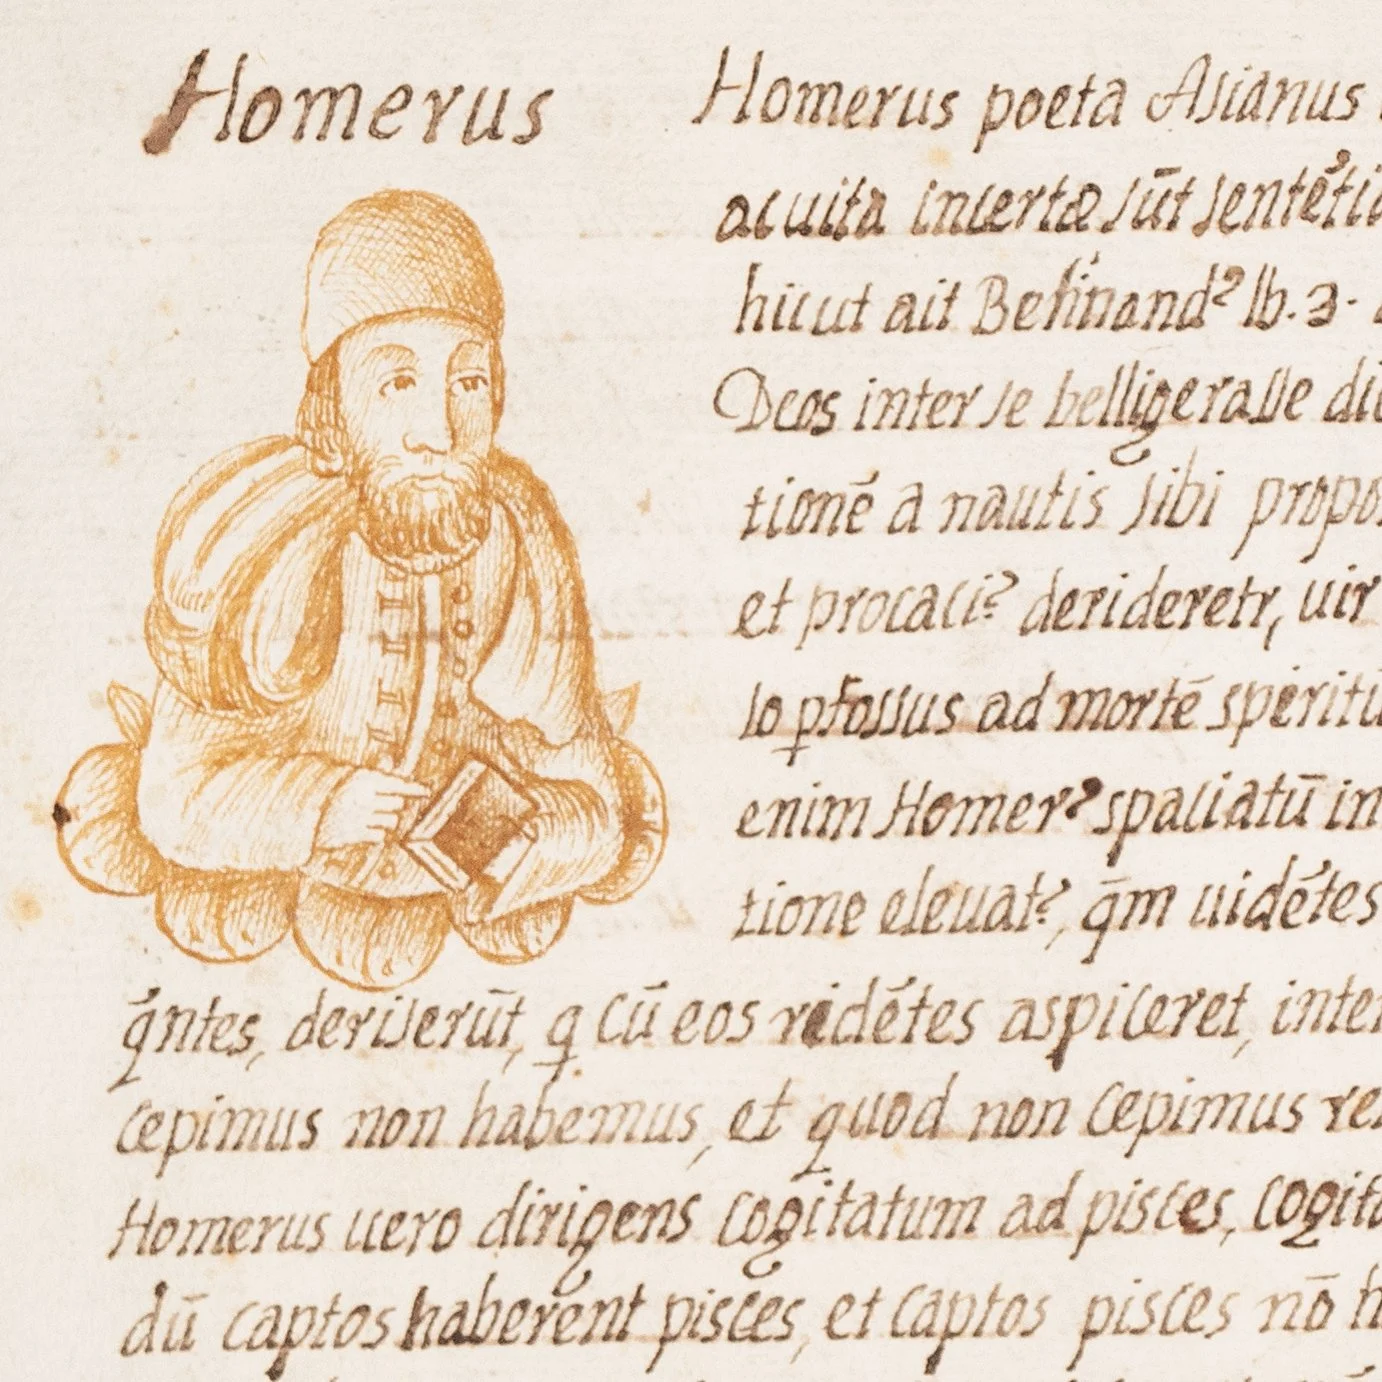 Homerus
Homerus poeta Asianus
acuita incertæ sūt sentētia
hicut ait Bertinand⁹ lb. 3.
Deos inter se belligerasse di
tionē a nautis sibi propos
et procaci⁹ derideretr, uir
lo pfossus ad mortē speritu
enim Homer⁹ spaciatū in
tione eleuat⁹, q̄m uidētes
q̄ntes, deriserūt, q cū eos ridētes aspiceret, inter
cepimus non habemus, et quod non cepimus re
Homerus uero dirigens cogitatum ad pisces, cogita
dū captos haberent pisces, et captos pisces nō h